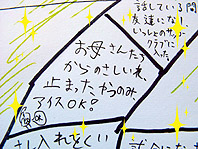 話している間
友達になり、
いっしょのサッカー
クラブに
入った
お母さんたち
からのさしいれ
止まったやつのみ
アイスOK!
さし入れをくい
試合に